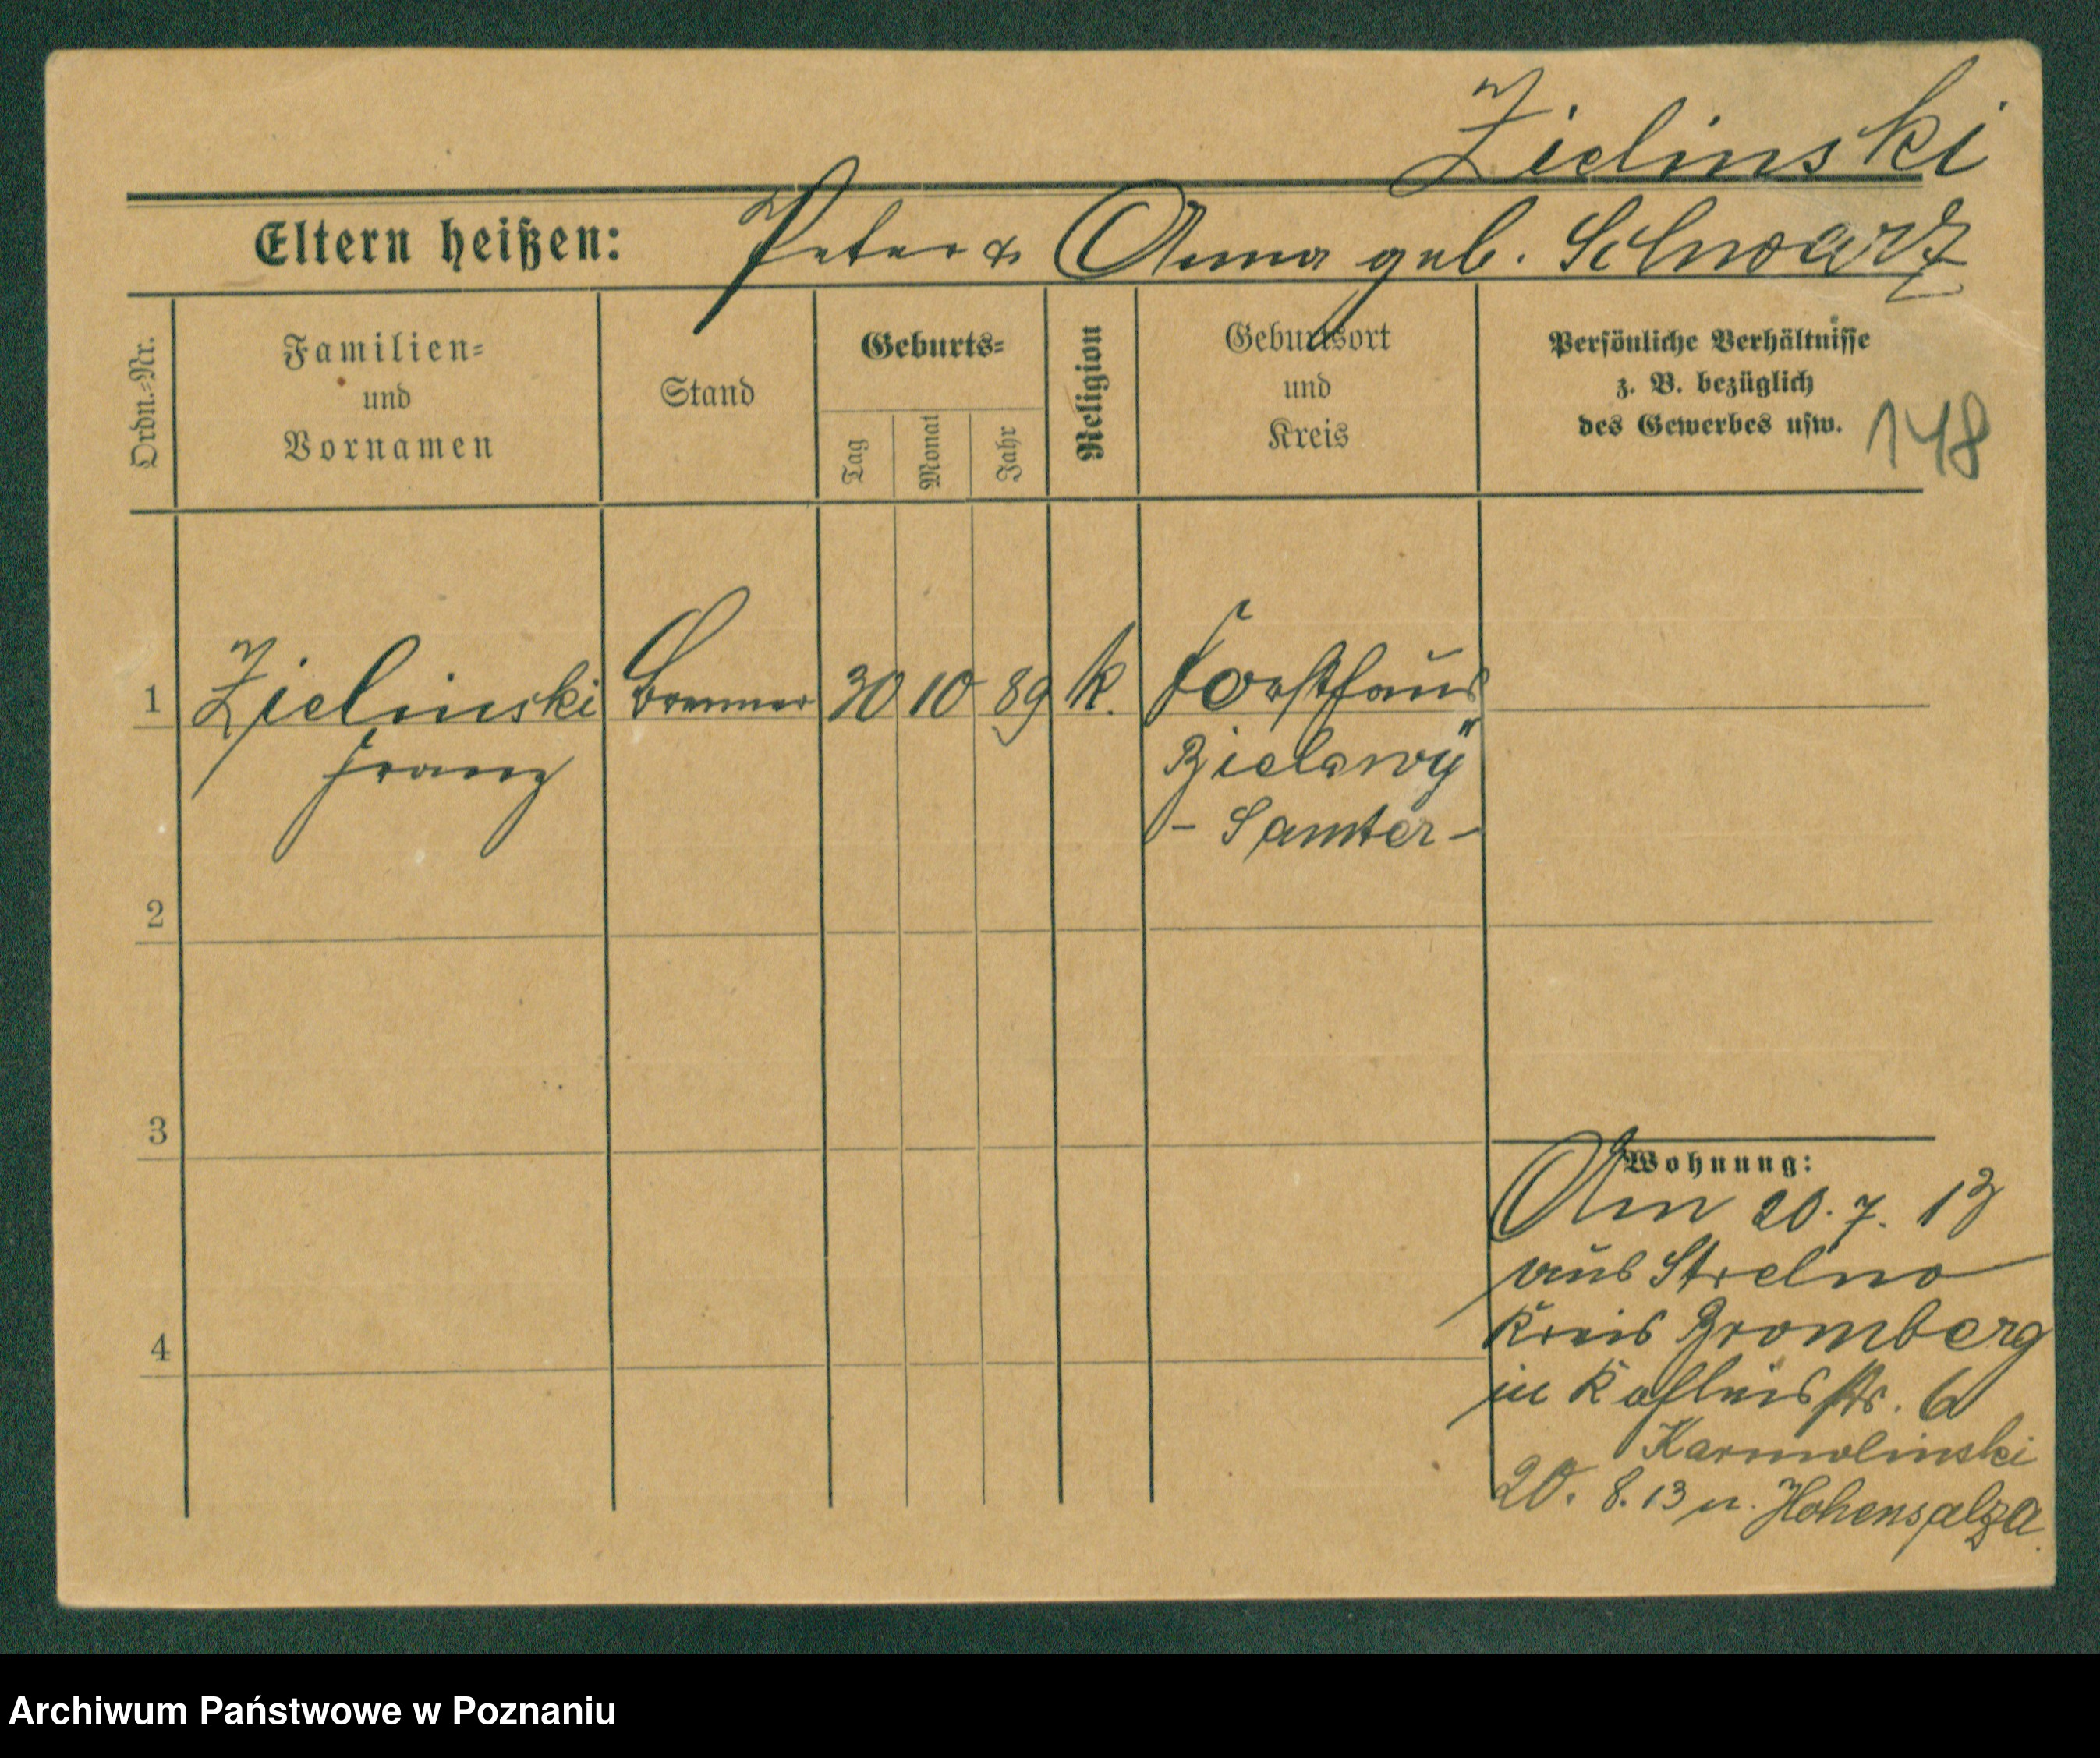 Zielinski
Eltern heißen: Peter & Anna geb. Schwarz
Ordn.-Nr.
Familien-
und
Vornamen
Stand
Geburts-
Tag
Monat
Jahr
Religion
Geburtsort
und
Kreis
Persönliche Verhältnisse
z. B. bezüglich
des Gewerbes usw.
148
1 Zielinski Brenner 30 10 89 k. Forsthaus
Franz Bielawÿ
- Samter -
2
3
4
Wohnung:
Am 20. 7. 13
aus Strelno
Kreis Bromberg
in str. 6
Karmolinski
20. 8. 13 n. Hohensalza.
Archiwum Państwowe w Poznaniu